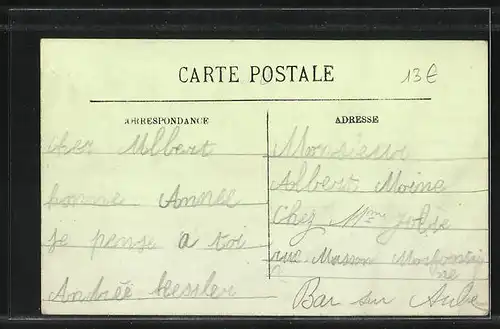 CARTE POSTALE
13€
CORRESPONDANCE
ADRESSE
Cher Albert
bonne Année
je pense a toi
Andrée Kessler
Monsieur
Albert Moine
Chez Mme
rue Masson
Bar sur Aube